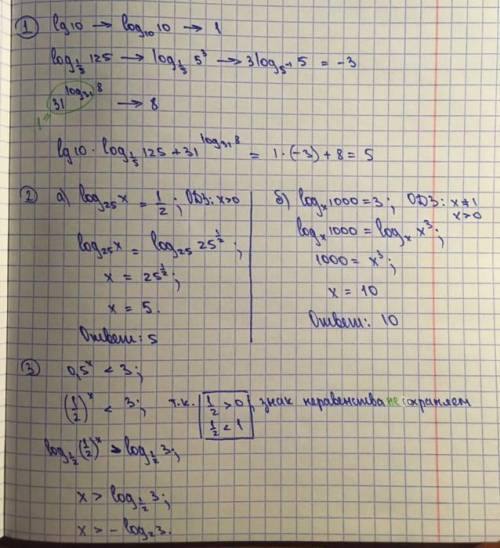 1 lg10 → log₁₀ 10 → 1
log_{1/5} 125 → log_{1/5} 5³ → 3log_{5⁻¹} 5 = -3
31^{log₃₁ 8} → 8
lg10 · log_{1/5} 125 + 31^{log₃₁ 8} = 1 · (-3) + 8 = 5
2 а) log₂₅ x = 1/2; ОДЗ: x>0
log₂₅ x = log₂₅ 25^{1/2};
x = 25^{1/2};
x = 5.
Ответ: 5
б) logₓ 1000 = 3; ОДЗ: x≠1
x>0
logₓ 1000 = logₓ x³;
1000 = x³;
x = 10
Ответ: 10
3 0,5ˣ < 3;
(1/2)ˣ < 3; т.к. 1/2 > 0, знак неравенства не сохраняем
1/2 < 1
log_{1/2} (1/2)ˣ > log_{1/2} 3;
x > log_{1/2} 3;
x > - log₂ 3.